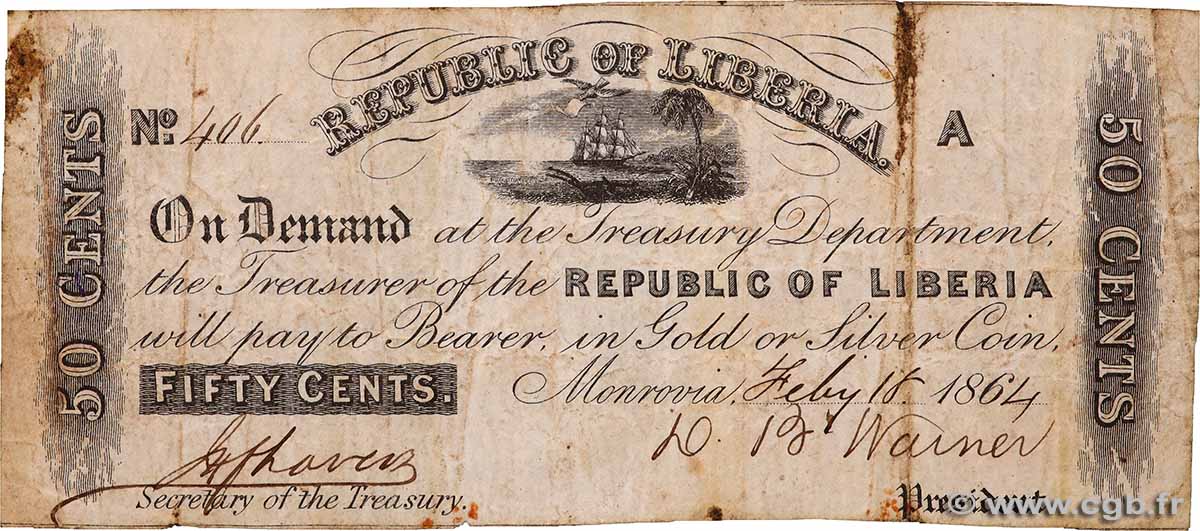 REPUBLIC OF LIBERIA.
No. 406.
A
50 CENTS
50 CENTS
On Demand at the Treasury Department,
the Treasurer of the REPUBLIC OF LIBERIA
will pay to Bearer, in Gold or Silver Coin,
FIFTY CENTS.
Monrovia, Feby 18 1864
D. B. Warner
Secretary of the Treasury.
President
© www.cgb.fr